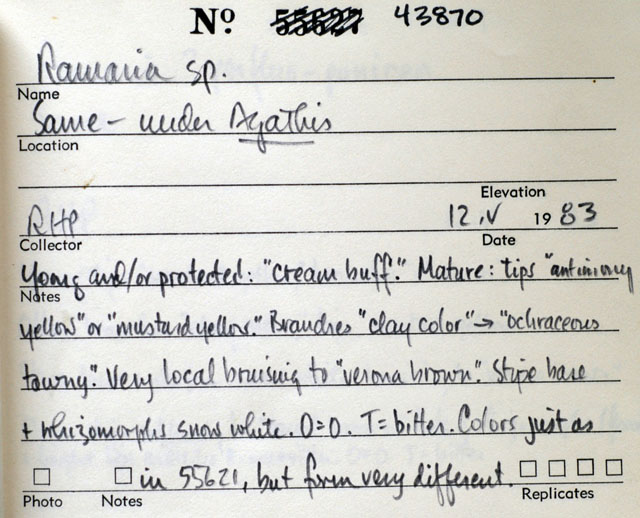 Nº 55627 43870
Ramaria sp.
Name
Same - under Agathis
Location
Elevation
RHP 12.V 1983
Collector Date
Young and/or protected: "cream buff." Mature: tips "antimony
Notes
yellow" or "mustard yellow." Branches "clay color" → "ochraceous
tawny." Very local bruising to "verona brown". Stipe base
+ rhizomorphs snow white. O=O. T=bitter. Colors just as
in 55621, but form very different.
Photo Notes Replicates